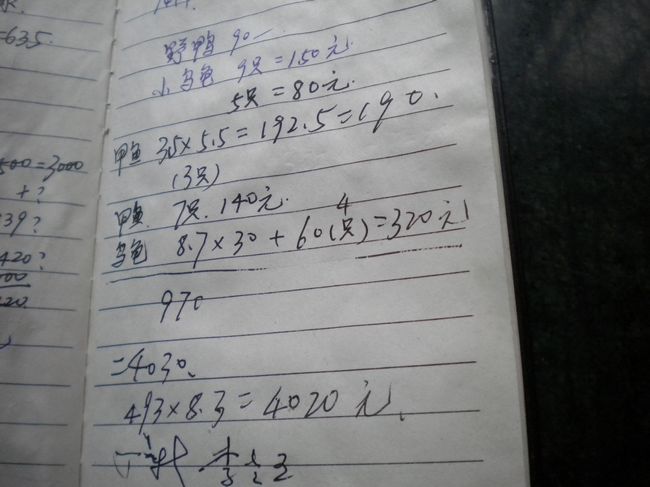 =635.
野鸭 90一
小乌龟 9只=150元.
5只=80元.
甲鱼 35×5.5=192.5=190.
(3只)
甲鱼 7只.140元.
4
乌龟 8.7×30+60(只)=320元
970
=4030、
493×8.3=4020元、
500=3000
+?
39?
420?
00
20